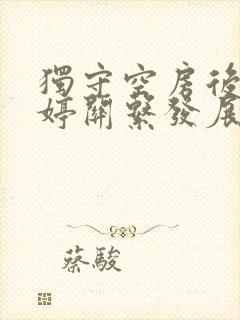 獨守空房後
婷關繫發展
蔡駿